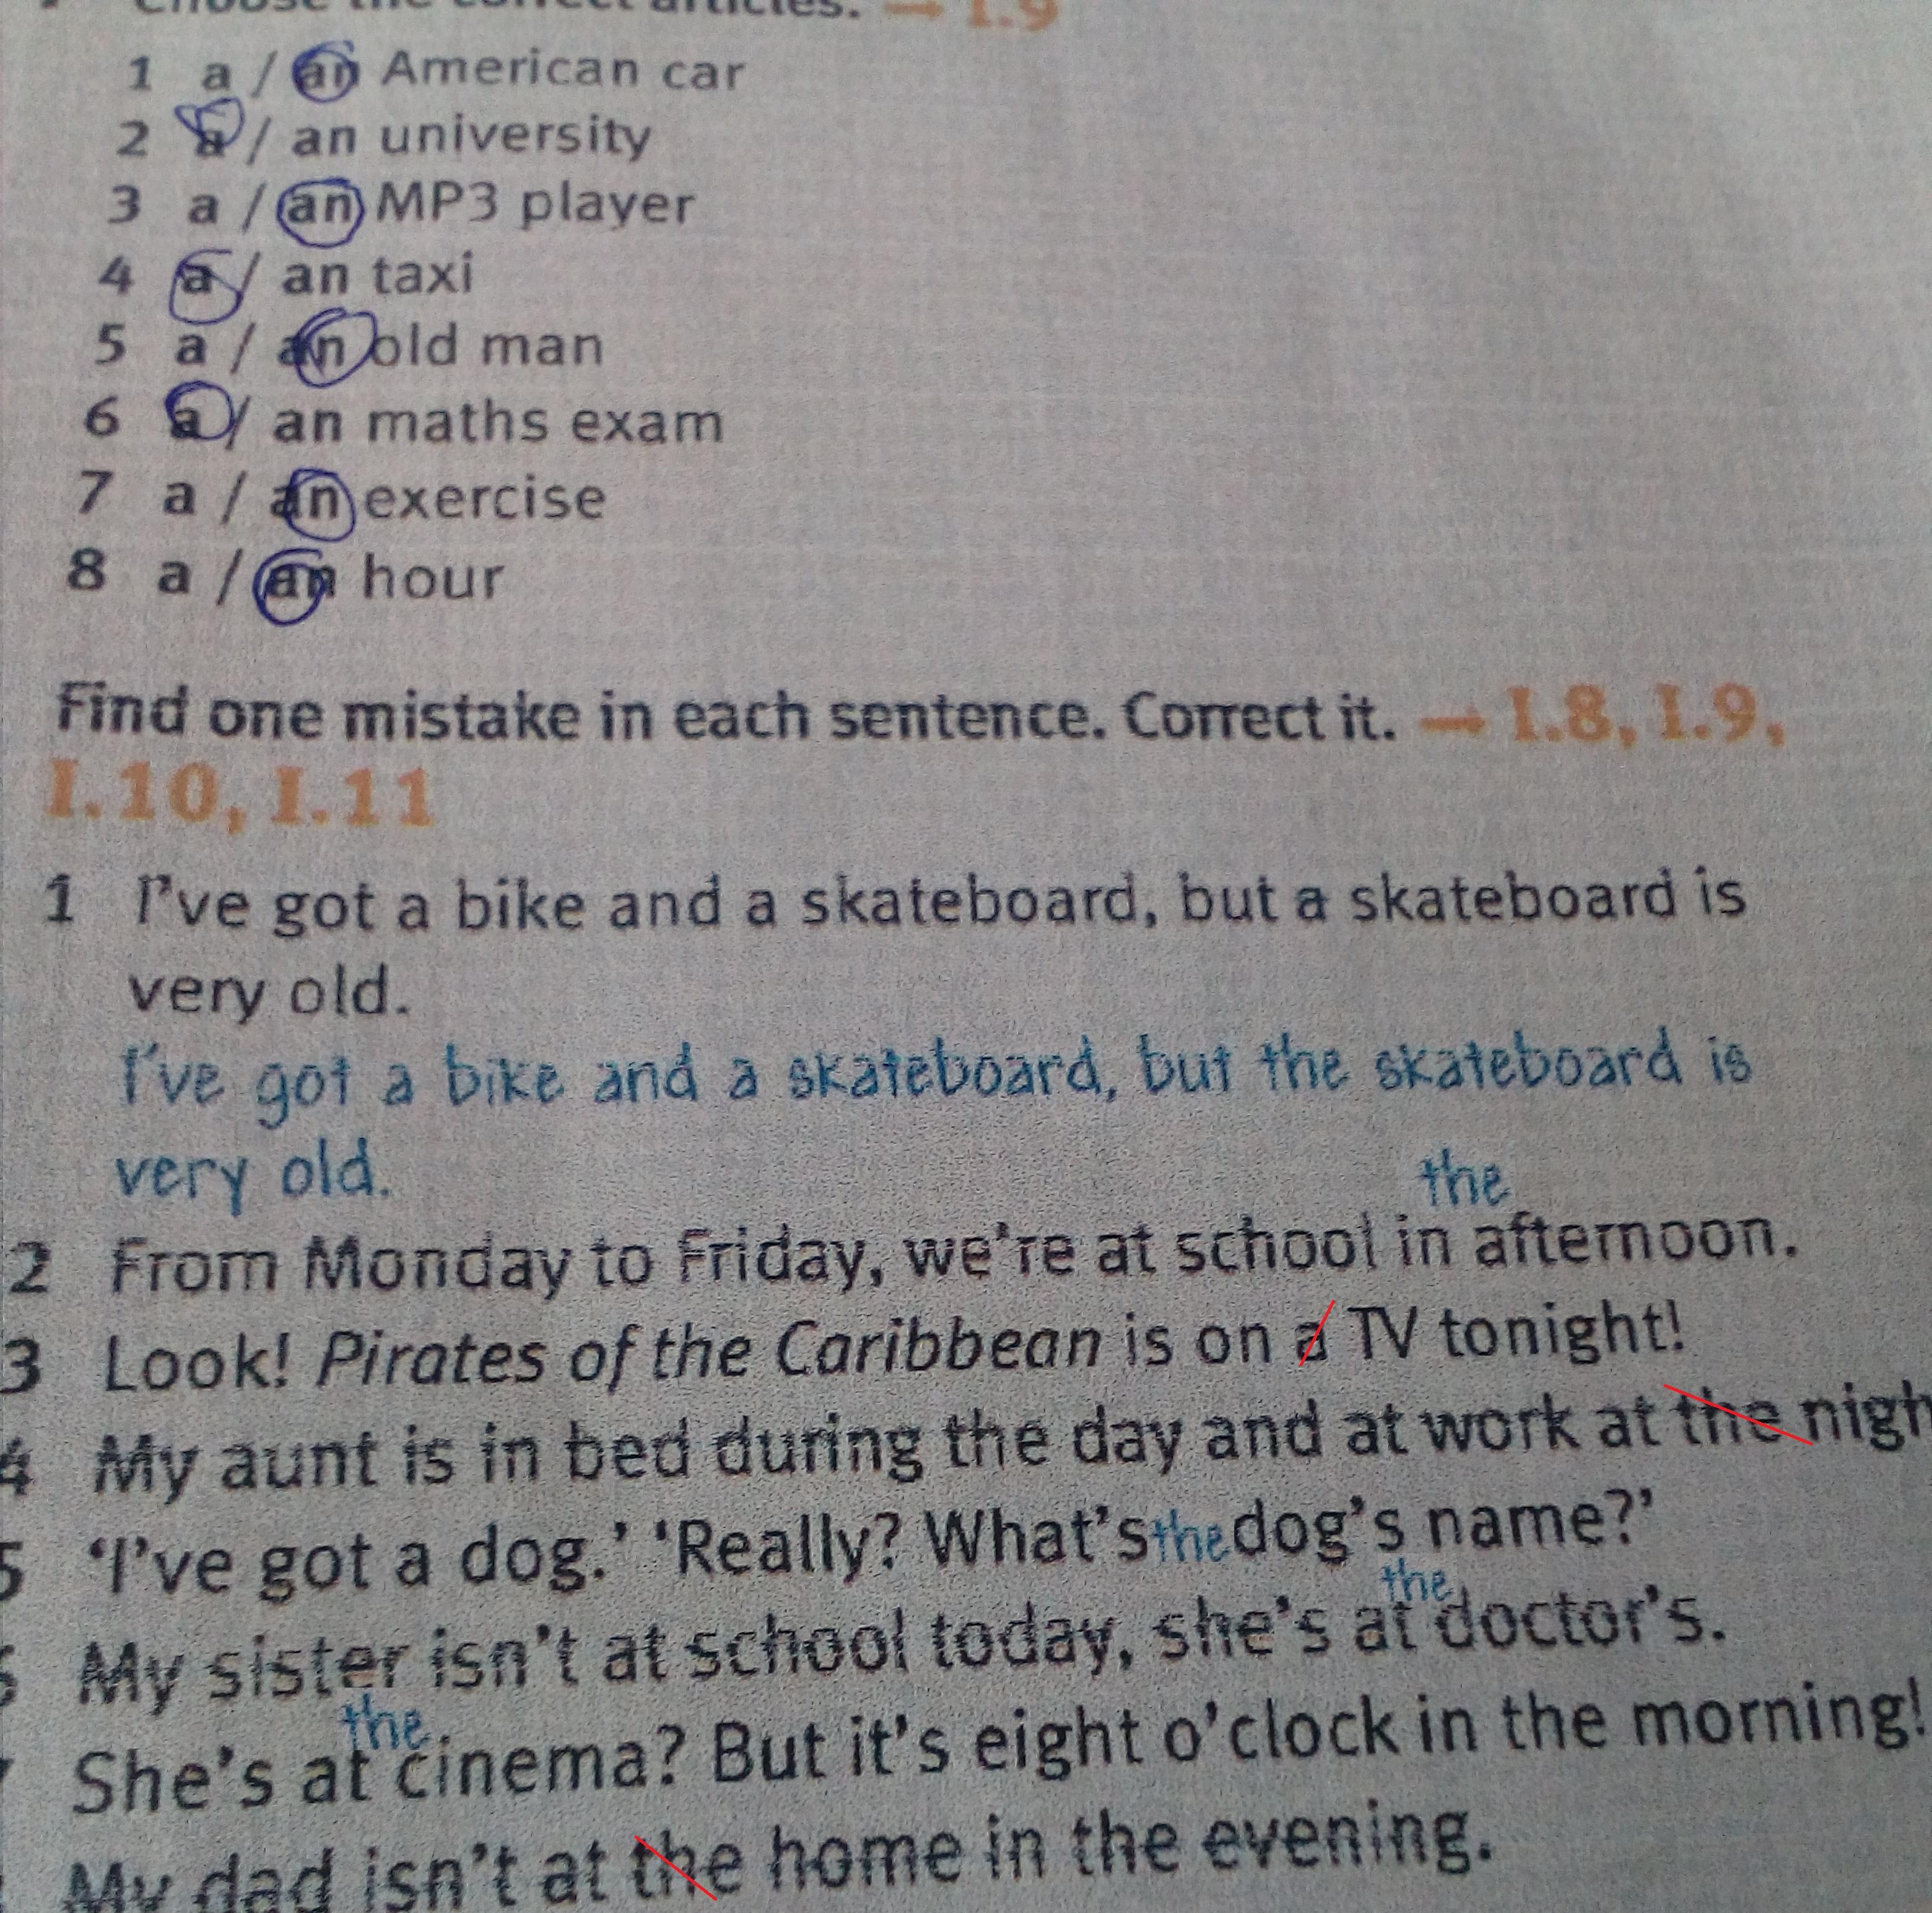 Choose the correct articles. → I.9
1 a / an American car
2 a / an university
3 a / an MP3 player
4 a / an taxi
5 a / an old man
6 a / an maths exam
7 a / an exercise
8 a / an hour
Find one mistake in each sentence. Correct it. → I.8, I.9,
I.10, I.11
1 I've got a bike and a skateboard, but a skateboard is
very old.
I've got a bike and a skateboard, but the skateboard is
very old.
the
2 From Monday to Friday, we're at school in afternoon.
3 Look! Pirates of the Caribbean is on a TV tonight!
4 My aunt is in bed during the day and at work at the nigh
5 'I've got a dog.' 'Really? What's the dog's name?'
the
My sister isn't at school today, she's at doctor's.
the
She's at cinema? But it's eight o'clock in the morning!
My dad isn't at the home in the evening.